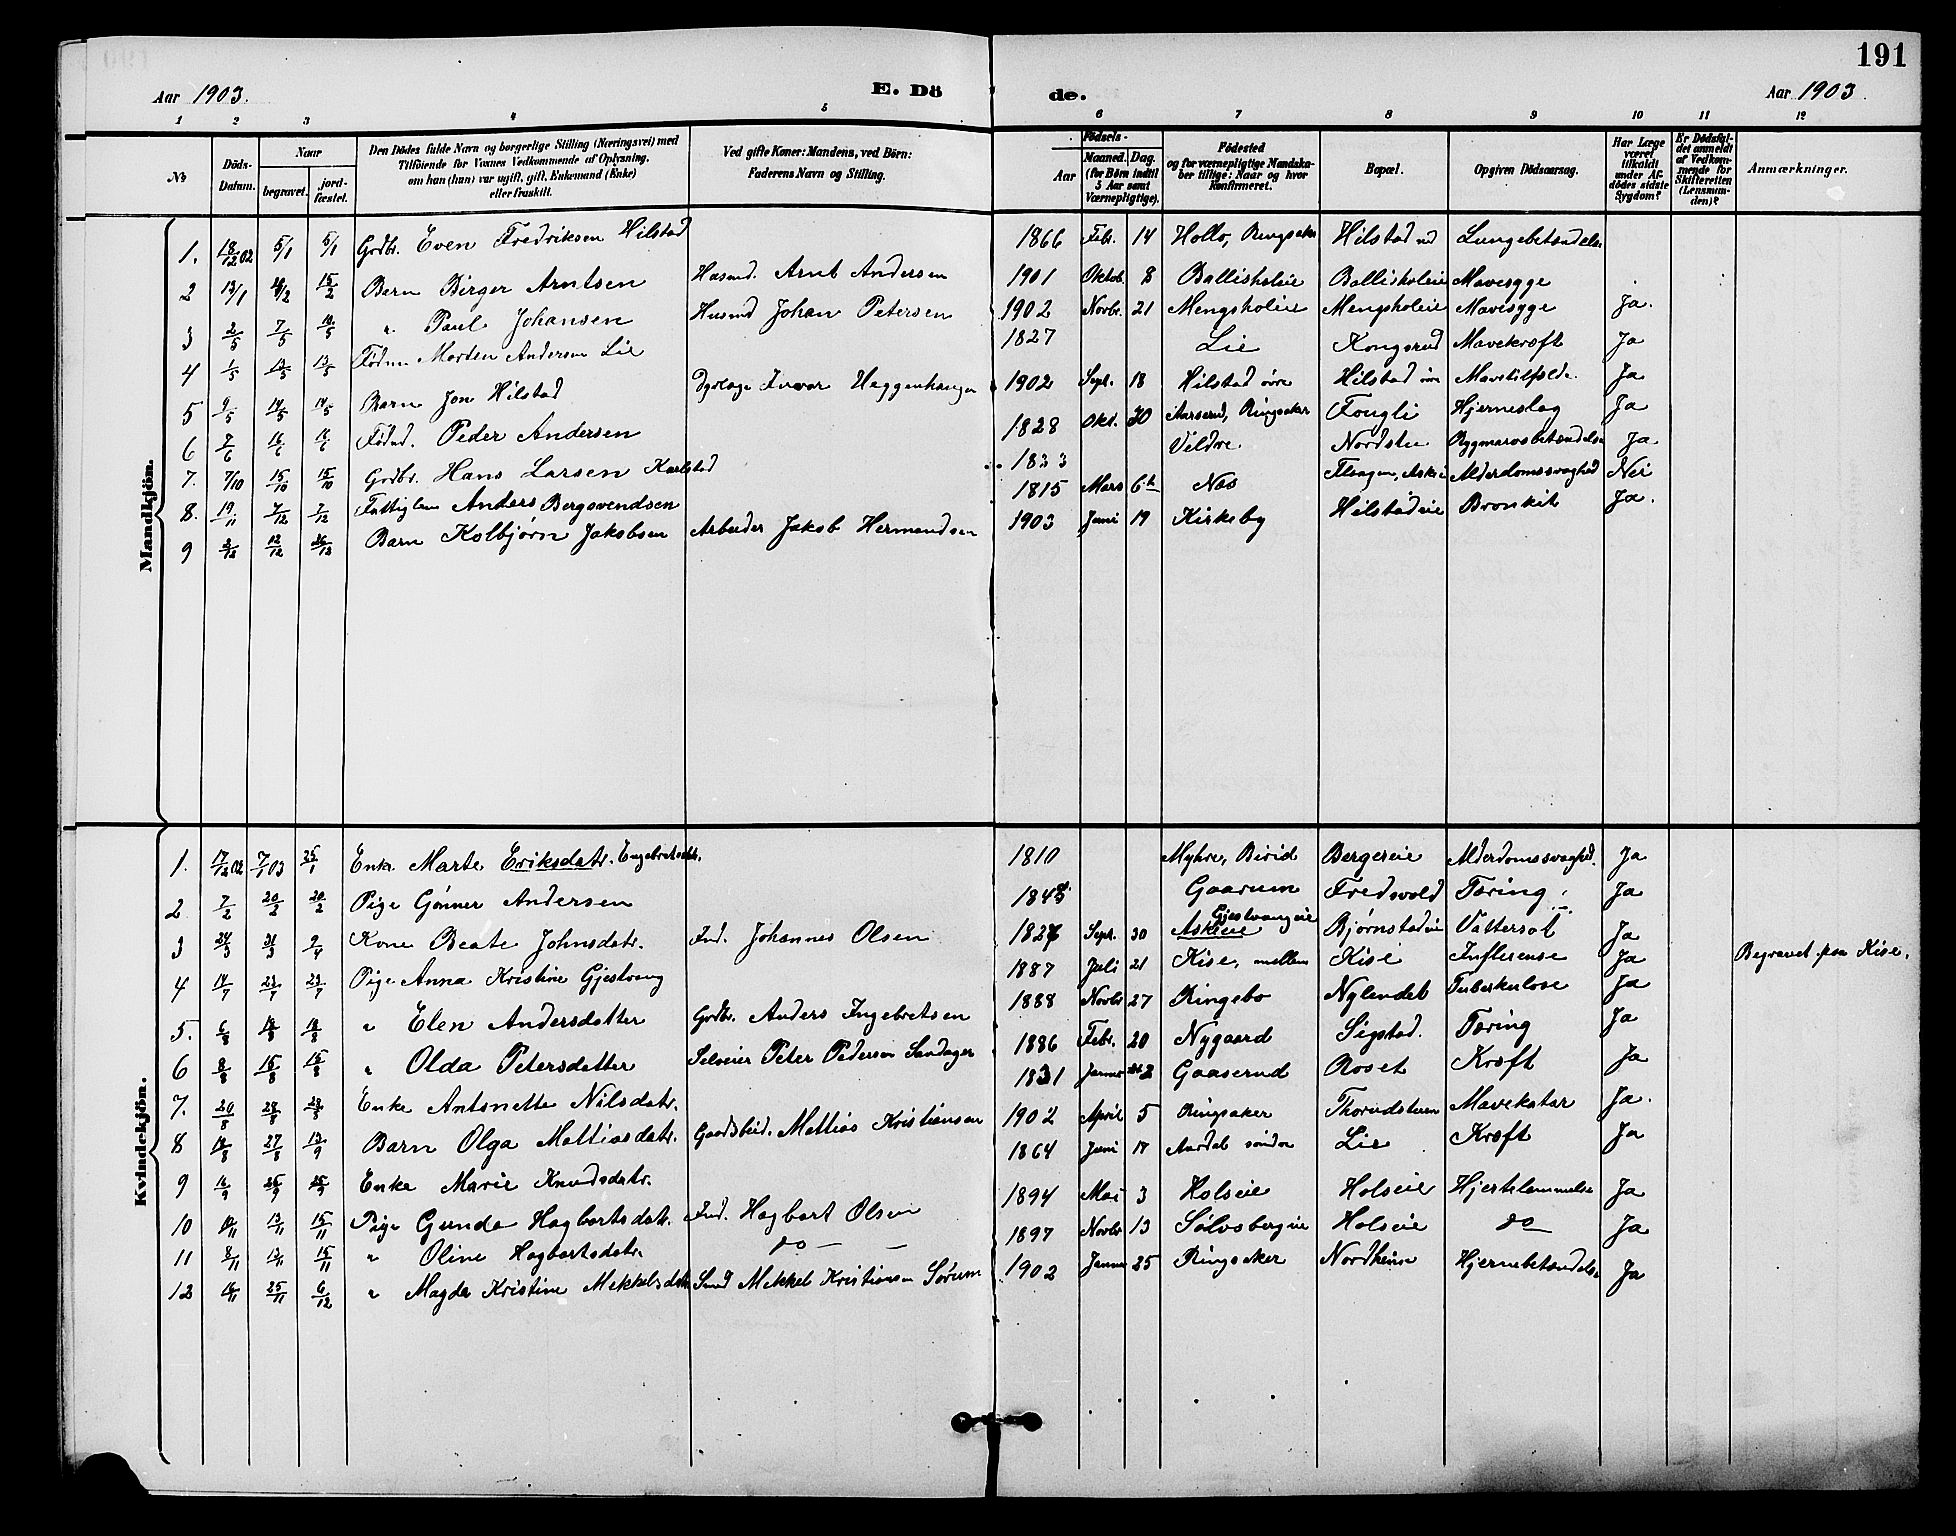 191
Aar 1903. E. Dö de. Aar 1903.
1 2 3 4 5 6 7 8 9 10 11 12
No Döds-Datum. Naar begravet. jord-fæstet. Den Dödes fulde Navn og borgerlige Stilling (Næringsvei) med Tilföiende for Voxnes Vedkommende af Oplysning, om han (hun) var ugift, gift, Enkemand (Enke) eller fraskilt. Ved gifte Koner: Mandens, ved Börn: Faderens Navn og Stilling. Födsels- Aar Maaned. Dag. (for Börn indtil 5 Aar samt Værnepligtige). Födested og for værnepligtige Mandska-ber tillige: Naar og hvor konfirmeret. Bopæl. Opgiven Dödsaarsag. Har Læge været tilkaldt under Af-dödes sidste Sygdom? Er Dödsfal-det anmeldt af Vedkom-mende for Skifteretten (Lensman-den)? Anmærkninger.
Mandkjön.
1. 18/12 02 5/1 5/1 Grdbr. Even Fredriksen Hilstad 1866 Febr. 14 Hollo, Ringsaker Hilstad Lungebetændelse
2 13/1 15/2 Barn Birger Arntsen Husmd. Arnt Andersen 1901 Oktob. 8 Ballisholeie Ballisholeie Mavesyge
3 2/5 7/5 10/5 " Paul Johansen Husmd Johan Petersen 1902 Novbr. 21 Mengsholeie Mengsholeie Mavesyge Ja.
4 1/5 13/5 13/5 Födrm Morten Andersen Lie 1827 Lie Kongsrud Mavekræft Ja
5 9/5 14/5 14/5 Barn Jon Hilstad Iver Haggenhaugen 1902 Sept. 18 Hilstad øvre Hilstad øvre Mavetilfælde. Ja
6 7/6 Födrd. Peder Andersen 1828 Okt. 30 Aarserud, Ringsaker Fougli Hjerneslag Ja
7. 7/10 15/10 15/10 Grdbr. Hans Larsen Karlstad 1833 Veldre Nordstu Rygmarvsbetændelse Ja.
8. 19/11 7/12 7/12 Fattiglem Anders Bergsvendsen 1815 Mars 6te Nes Alderdomssvaghed Nei
9 3/12 12/12 26/12 Barn Kolbjørn Jakobsen Arbeider Jakob Hermandsen 1903 Juni 19 Kirkeby Hilstadeie Bronkit Ja.
Kvindekjön.
1. 17/12 02 7/1 03 25/1 Enke Marte Eriksdatr. Engebretsdtr. 1810 Myhre, Birid Bergereie Alderdomssvaghed. Ja
2 7/2 20/2 20/2 Pige Gønner Andersen 1845 Gaarum Fredsvold Tæring. Ja
3 24/3 31/3 9/4 Kone Beate Johnsdatr. Ind. Johannes Olsen 1827 Sept. 30 Askeie Gjestvangeie Bjørnstadeie Vattersot Ja
4 14/7 23/7 23/7 Pige Anna Kristine Gjestvang 1887 Juli 21 Kise, mellem Kise Influense Ja Begravet paa Kise.
5. 6/8 18/8 18/8 " Elen Andersdatter Grdbr. Anders Ingebretsen 1888 Novbr 27 Ringebo Nylendet Tuberkulose Ja
6 8/8 15/8 15/8 " Olda Petersdatter Selveier Peter Pedersen Sandager 1886 Febr. 20 Nygaard Sigstad. Tæring Ja
7. 20/8 28/8 28/8 Enke Antonette Nilsdatr. 1831 Januar Gaaserud Roset Kræft Ja
8 18/8 27/8 13/9 Barn Olga Mattiasdatr. Gaardsbeid. Mattias Kristiansen 1902 April 5 Ringsaker Thorudstuen Mavekatar Ja.
9 16/9 25/9 25/9 Enke Marie Knudsdatr. 1864 Juni 17 Aurdal søndre Lie Kræft Ja
10 10/11 13/11 15/11 Pige Gunda Hagbartsdatr. Ind. Hagbart Olsen 1894 Mai 3 Holseie Holseie Hjertelammelse Ja
11 8/11 13/11 15/11 " Oline Hagbartsdatr. do — — 1897 Novbr 13 Sølvsbergeie Holseie do — Ja
12 16/11 25/11 6/12 " Magda Kristine Mekkelsdatr Smed Mekkel Kristiansen Sørum 1902 Januar 25 Ringsaker Nordheim Hjernebetændelse Ja